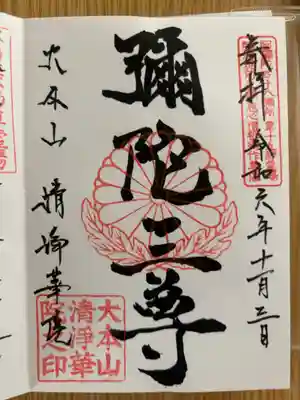 奉拝 令和元年十一月三日
彌陀三尊
大本山 清浄華院
大本山
清浄華
院之印